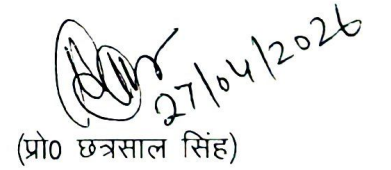 27/04/2026
(प्रो0 छत्रसाल सिंह)